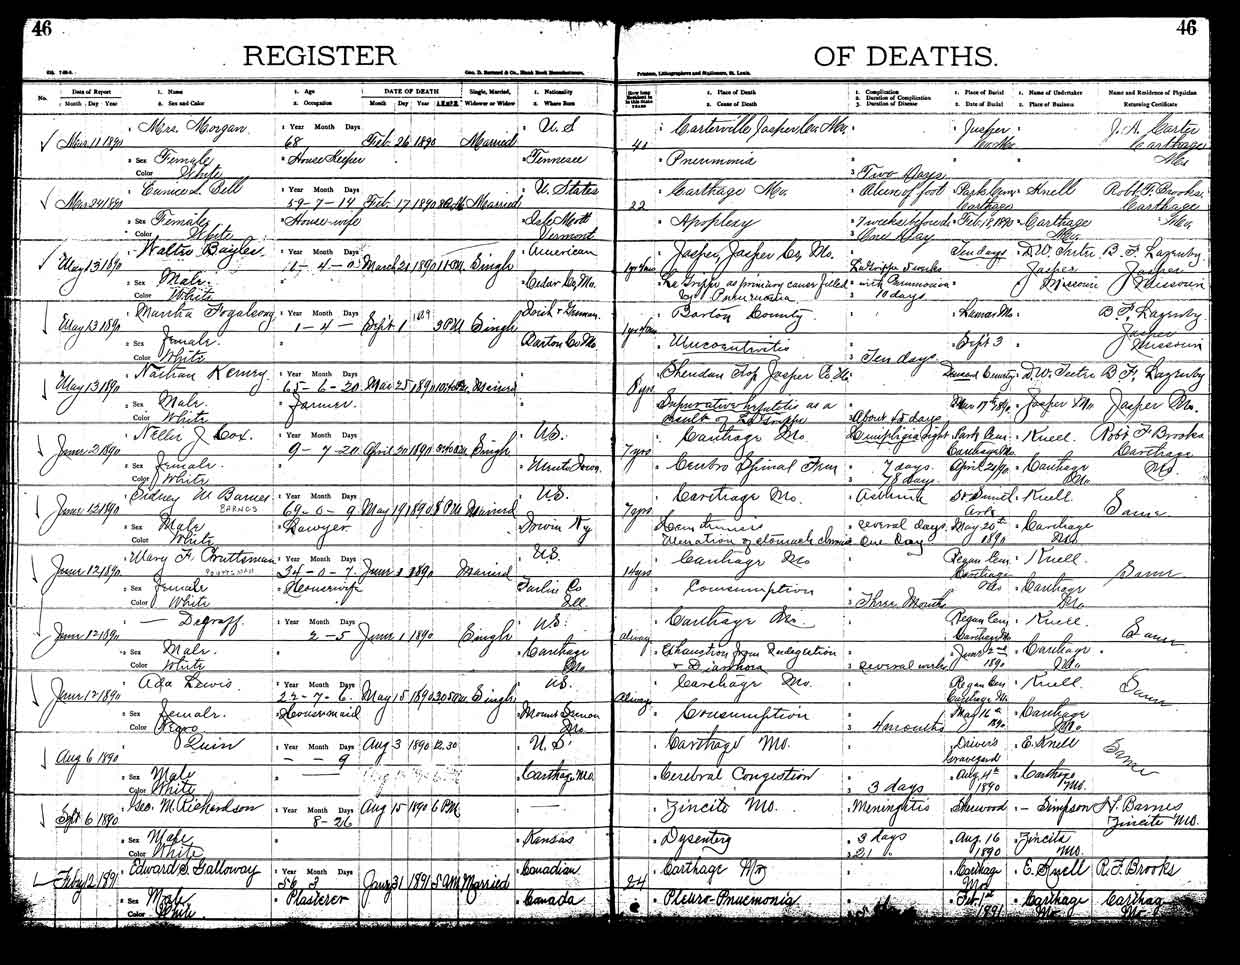 46
46
REGISTER OF DEATHS.
Geo. D. Barnard & Co., Blank Book Manufacturers,
Printers, Lithographers and Stationers, St. Louis.
No. Date of Report 1. Name 1. Age DATE OF DEATH Single, Married, 1. Nationality
Month Day Year 2. Sex and Color 2. Occupation Month Day Year Widower or Widow 2. Where Born
How long Resident in this State 1. Place of Death 1. Complication 1. Place of Burial 1. Name of Undertaker Name and Residence of Physician
YEARS 2. Cause of Death 2. Duration of Complication 2. Date of Burial 2. Place of Business Returning Certificate
3. Duration of Disease
Mrs. Morgan Year Month Days U.S Carterville Jasper Co. Mo. Jasper J. A. Carter
Mar 11 1890 68 Feb 26 1890 Married 40 Co Mo Carthage
Sex Female House Keeper Tennessee Pneumonia Mo
Color White Two days
Eunice L. Bell Year Month Days U. States Carthage Mo. Park Cem Knell Robt F. Brooks
Mar 24 1890 59-7-14 Feb 17 1890 Married 22 Carthage Carthage
Sex Female House-wife Apoplexy Feb. 18, 1890 Carthage Mo.
Color White Vermont One day Mo.
Year Month Days American Jasper, Jasper Co, Mo. Ten days B F. Lazenby
May 13 1890 1-4-0 March 21 1890 Single La Grippe 5 weeks Jasper Jasper
Sex Male Cedar Co, Mo. La Grippe as primary cause with Pneumonia Missouri Missouri
Color White Pneumonia 10 days
Martha Year Month Days Barton County Lamar Mo. B. F. Lazenby
May 13 1890 1-4- Sept 1 3 P.M Single Jasper
Sex Female Barton Co Mo Sept 3 Missouri
Color White Ten days
Nathan Year Month Days Jasper Co. Mo B. F. Lazenby
May 13 1890 65-6-20 Mar 25 1890 Married 8 yrs.
Sex Male Farmer. as a Jasper Mo Jasper Mo.
Color White Result of La Grippe About 45 days
Nellie J Cox. Year Month Days U.S. Carthage Mo Hemiplegia right Park Cem Knell. Robt F Brooks
June 2 1890 9-7-20 April 20 1890 Single 7 yrs Carthage Mo. Carthage
Sex Female Cerebro Spinal 7 days April 21/90 Carthage Mo
Color White 48 days. Mo.
Sidney W Barnes Year Month Days U.S. Carthage Mo. Asthma Knell
BARNES
June 12 1890 69-0-9 May 19 1890 Married 7 yrs Same
Sex Male Lawyer Ky Several days May 20th Carthage
Color White Ulceration of stomach One Day 1890 Mo.
Mary F. Year Month Days U.S. Carthage Mo Cem Knell
June 12 1890 34-0-7 June 3 1890 Married 14 yrs Carthage Same
Sex Female Housewife Co Consumption Mo Carthage
Color White Ill. Three Months Mo
— Degraff. Year Month Days U.S. Carthage Mo. Cem Knell.
June 12 1890 2-5 June 1 1890 Single always Carthage Mo Same
Sex Male. Carthage Exhaustion from Indigestion June 2nd Carthage
Color White Mo & Diarrhoea Several weeks 1890 Mo
Ada Lewis Year Month Days U.S. Carthage Mo. Cem Knell
June 12 1890 22-7-6 May 15 1890 Single Always Carthage Mo Same
Sex Female. Housemaid Mount Vernon Consumption May 16th Carthage
Color Negro Mo. 4 months 1890 Mo.
Quin Year Month Days Aug 3 1890 12.30 U.S. Carthage Mo. Driver's E. Knell
Aug 6 1890 - - 9 Graveyard Same
Sex Male Carthage Mo. Cerebral Congestion Aug. 4th Carthage
Color White 3 days 1890 Mo.
Geo. M. Richardson Year Month Days Aug 15 1890 6 PM Zincite Mo. Meningitis Sherwood - Simpson N. Barnes
Sept 6 1890 8-26 Zincite Mo.
Sex Male Kansas Dysentery 3 days Aug. 16 Zincite
Color White 21 1890 Mo.
Edward S. Galloway Year Month Days Canadian Carthage Mo Carthage E. Knell R. F. Brooks
Feby 12 1891 56 3 Jany 31 1891 5 AM Married 24 Mo
Sex Male Plasterer Canada Pleuro-Pneumonia Feb. 1st Carthage Carthage
Color White. 1891 Mo. Mo.